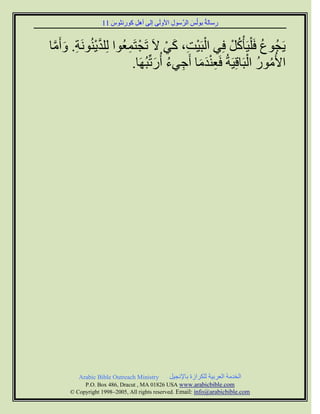 رسالة بولس الرسول الأولى إلى أهل كورنثوس 11
يَجُوعُ فَلْيَأْكُلْ فِي الْبَيْتِ، كَيْ لاَ تَجْتَمِعُوا لِلدَّيْنُونَةِ. وَأَمَّا
الأُمُورُ الْبَاقِيَةُ فَعِنْدَمَا أَجِيءُ أُرَتِّبُهَا.
Arabic Bible Outreach Ministry الخدمة العربية للكرازة بالإنجيل
P.O. Box 486, Dracut , MA 01826 USA www.arabicbible.com
© Copyright 1998–2005, All rights reserved. Email: info@arabicbible.com